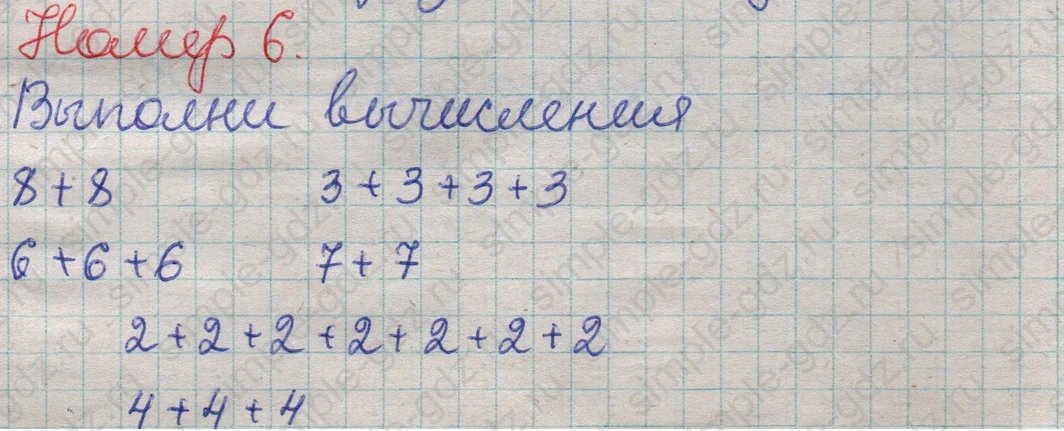 Номер 6.
Выполни вычисления
8 + 8 3 + 3 + 3 + 3
6 + 6 + 6 7 + 7
2 + 2 + 2 + 2 + 2 + 2 + 2
4 + 4 + 4
simple-gdz.ru